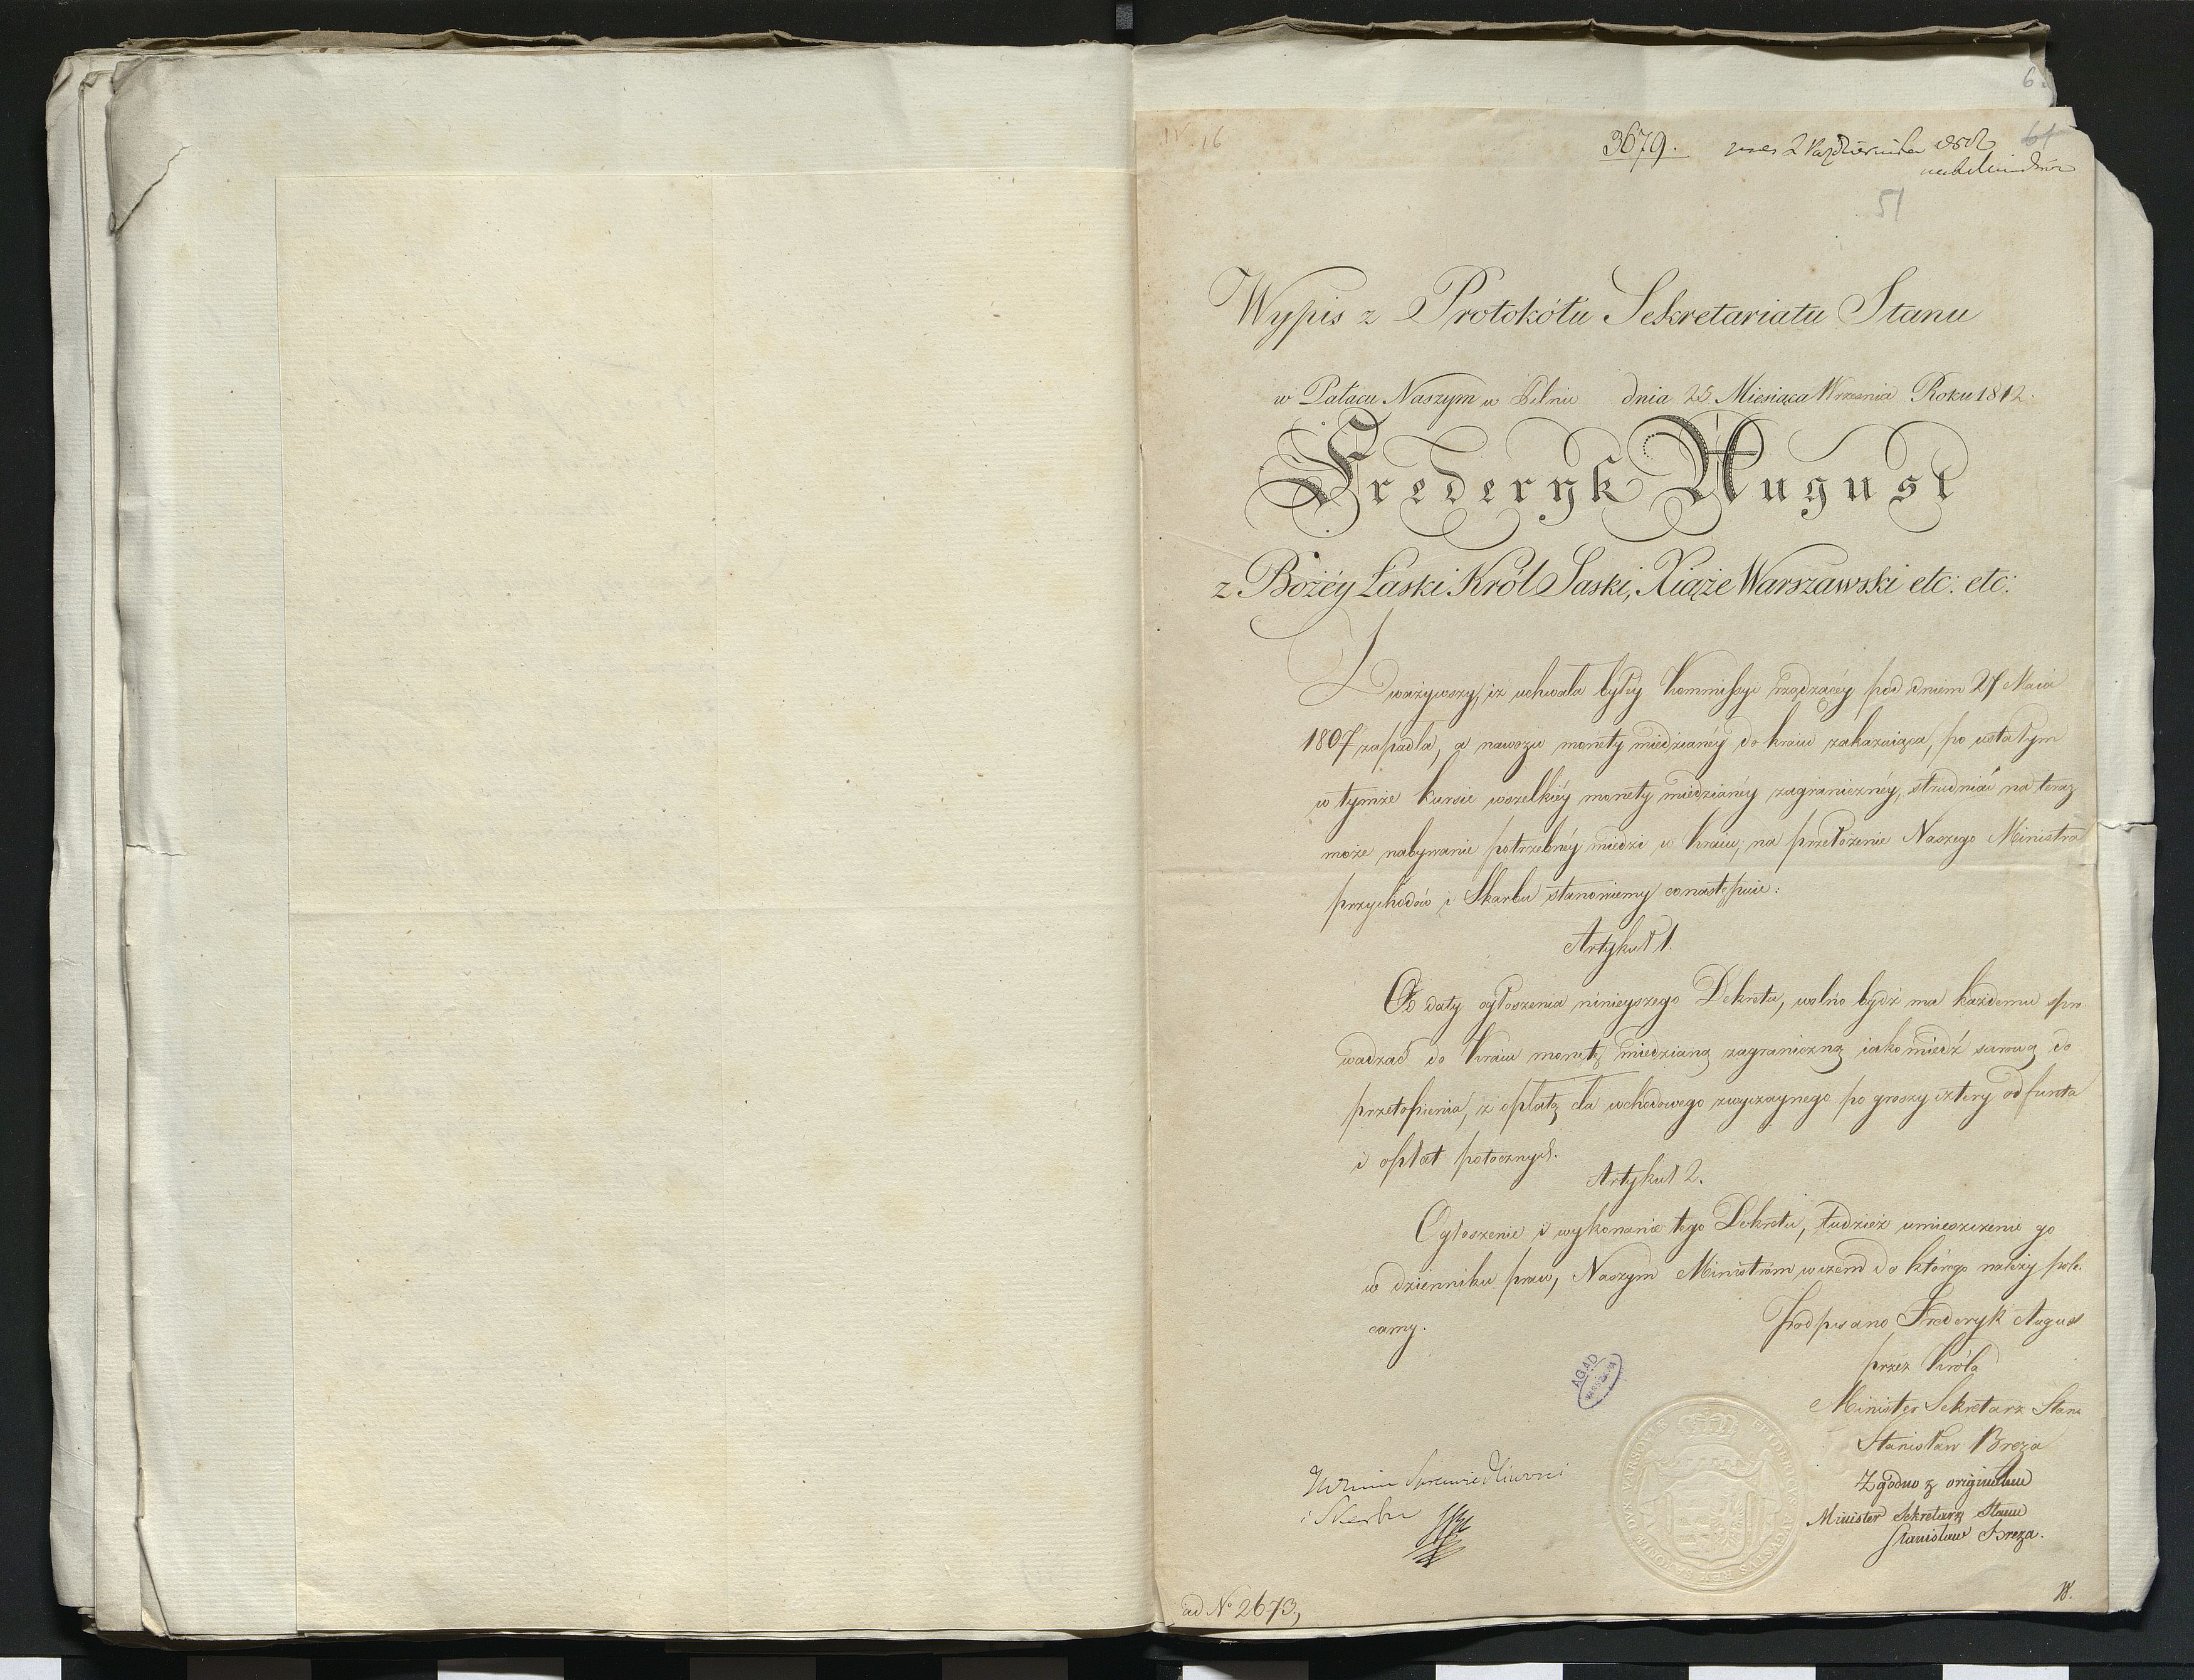 6.
IV. 16
3679.
2 Października
61
51
Wypis z Protokółu Sekretariatu Stanu
w Pałacu Naszym w Pilnic dnia 25 Miesiąca Września Roku 1812.
Fryderyk August
z Bożéy Łaski Król Saski, Xiąże Warszawski etc: etc:
Zważywszy, iż uchwała byłéy Kommissyi rządzącéy pod dniem 27 Maia
1807 zapadła, a nawozu monety miedzianéy do kraiu zakazuiąca, po ustałym
w tymże kursie wszelkiéy monety miedzianéy zagranicznéy, utrudniać na teraz
może nabywanie potrzebnéy miedzi w kraiu, na przełożenie Naszego Ministra
przychodów i Skarbu stanowiemy co następuie:
Artykuł 1.
Od daty ogłoszenia ninieyszego Dekretu, wolno bydź ma każdemu spro
wadzać do Kraiu monetę miedzianą zagraniczną iako miedź surową do
przetopienia, z opłatą cła wchodowego zwyczaynego po groszy cztery od funta
i opłat potocznych.
Artykuł 2.
Ogłoszenie i wykonanie tego Dekretu, tudzież umieszczenie go
w dzienniku praw, Naszym Ministrom w czem do którego należy pole-
camy.
Podpisano Fryderyk August
przez Króla
Minister Sekretarz Stanu
Stanisław Breza
Zgodno z originałem
Minister Sekretarz Stanu
Stanisław Breza.
AGAD
WARSZAWA
FRIDERICVS AVGVSTVS REX SAXONIAE DVX VARSOVIAE
Sprawiedliwości
i Skarbu
ad No 2673,